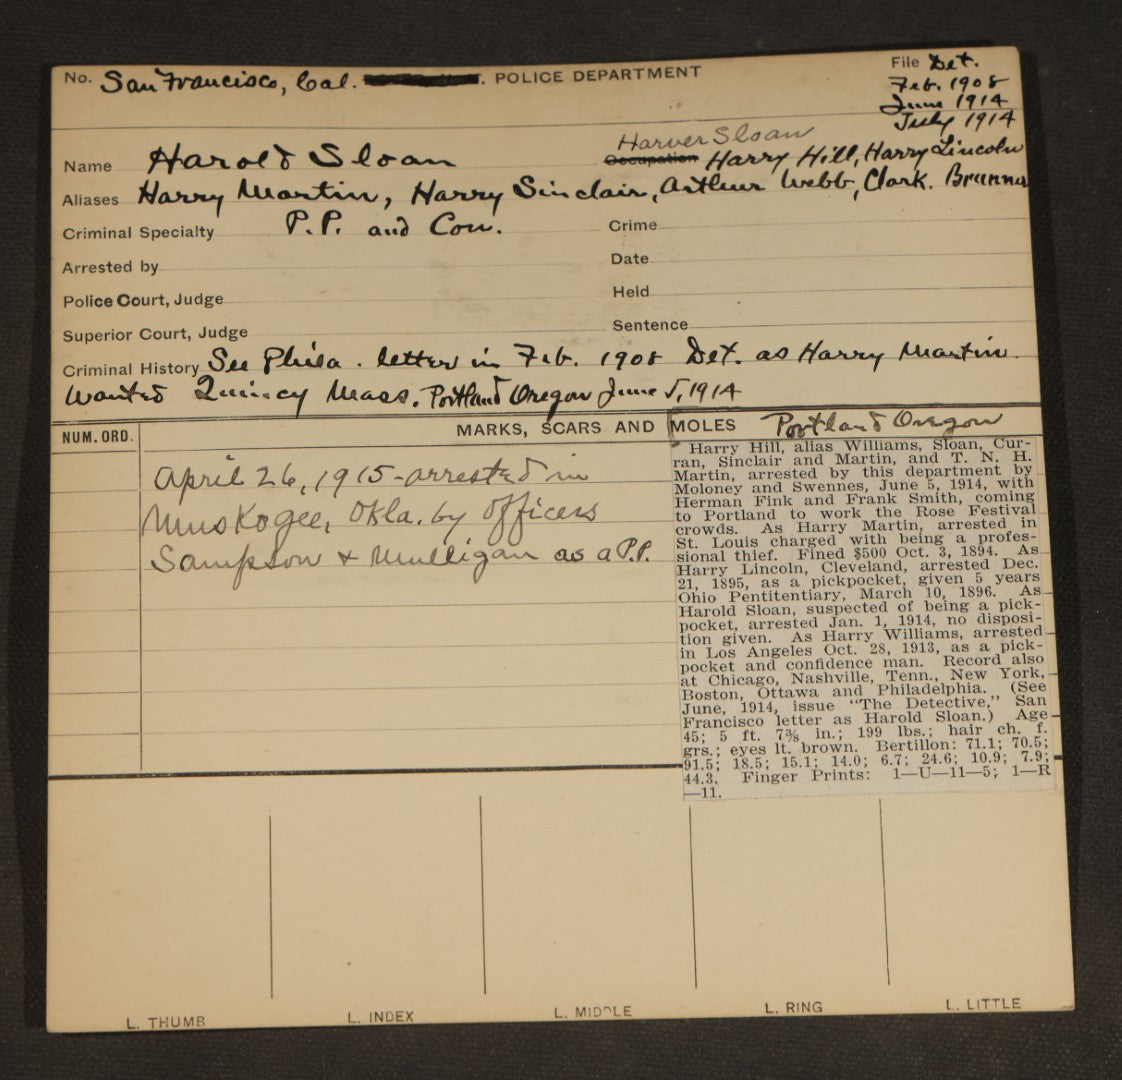 No. San Francisco, Cal. POLICE DEPARTMENT File Det.
Feb. 1908
June 1914
July 1914
Harver Sloan
Name Harold Sloan Occupation Harry Hill, Harry Lincoln
Aliases Harry Martin, Harry Sinclair, Arthur Webb, Clark. Brunner
Criminal Specialty P.P. and Con. Crime
Arrested by Date
Police Court, Judge Held
Superior Court, Judge Sentence
Criminal History See Phila. letter in Feb. 1908 Det. as Harry Martin
Wanted Quincy Mass. Portland Oregon June 5, 1914
NUM. ORD. MARKS, SCARS AND MOLES Portland Oregon
April 26, 1915 - arrested in
Muskogee, Okla. by officers
Sampson & Mulligan as a P.P.
Harry Hill, alias Williams, Sloan, Cur-
ran, Sinclair and Martin, and T. N. H.
Martin, arrested by this department by
Moloney and Swennes, June 5, 1914, with
Herman Fink and Frank Smith, coming
to Portland to work the Rose Festival
crowds. As Harry Martin, arrested in
St. Louis charged with being a profes-
sional thief. Fined $500 Oct. 3, 1894. As
Harry Lincoln, Cleveland, arrested Dec.
21, 1895, as a pickpocket, given 5 years
Ohio Pentitentiary, March 10, 1896. As
Harold Sloan, suspected of being a pick-
pocket, arrested Jan. 1, 1914, no disposi-
tion given. As Harry Williams, arrested
in Los Angeles Oct. 28, 1913, as a pick-
pocket and confidence man. Record also
at Chicago, Nashville, Tenn., New York,
Boston, Ottawa and Philadelphia. (See
June, 1914, issue "The Detective," San
Francisco letter as Harold Sloan.) Age
45; 5 ft. 7⅜ in.; 199 lbs.; hair ch. f.
grs.; eyes lt. brown. Bertillon: 71.1; 70.5;
91.5; 18.5; 15.1; 14.0; 6.7; 24.6; 10.9; 7.9;
44.3. Finger Prints: 1—U—11—5; 1—R
—11.
L. THUMB L. INDEX L. MIDDLE L. RING L. LITTLE